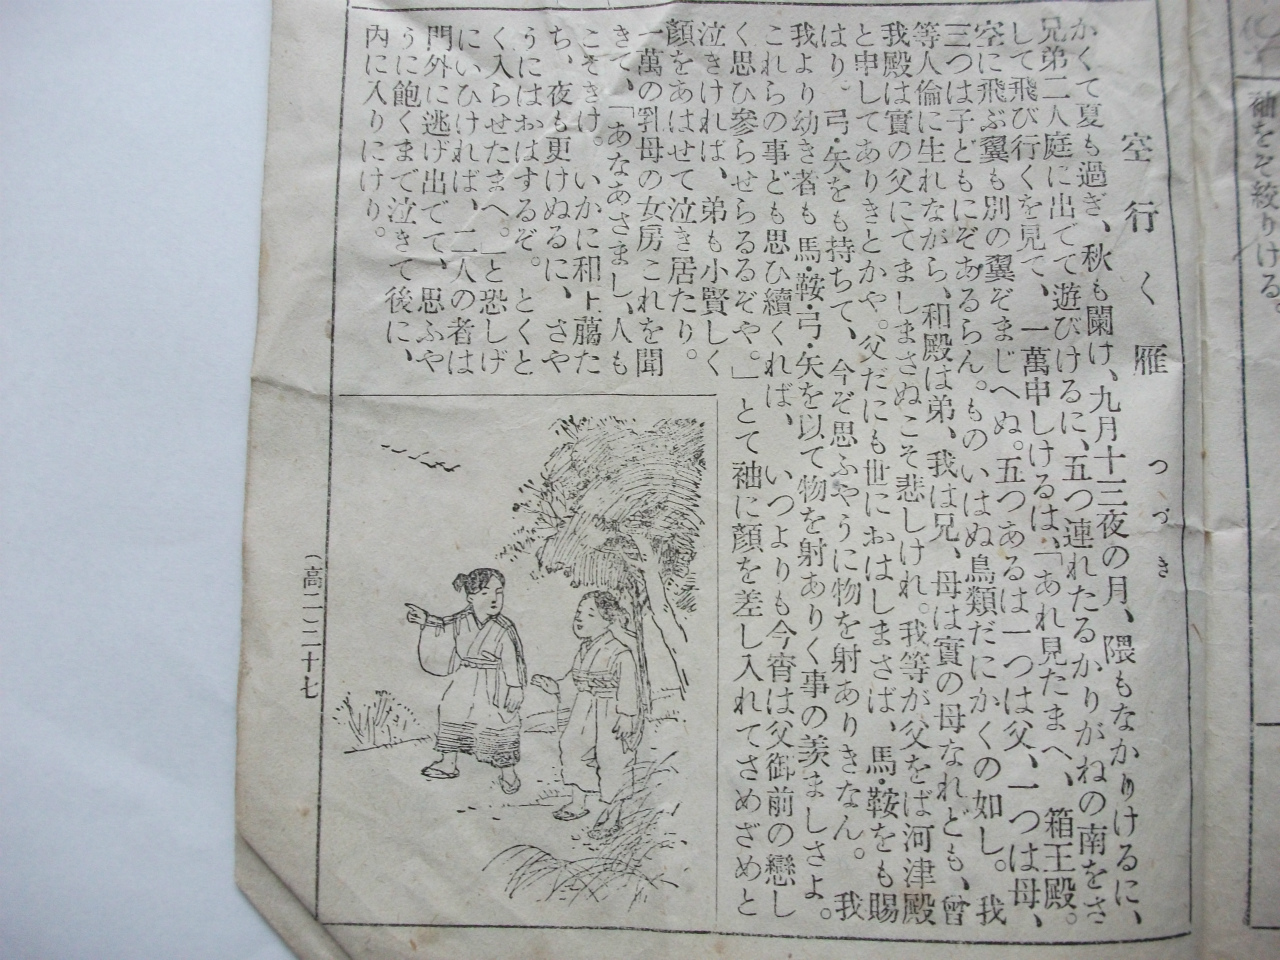 袖をぞ絞りける。
空行く雁 つづき
かくて夏も過ぎ、秋も闌け、九月十三夜の月、隈もなかりけるに、
兄弟二人庭に出でて遊びけるに、五つ連れたるかりがねの南をさ
して飛び行くを見て、一萬申しけるは、「あれ見たまへ、箱王殿。
空に飛ぶ翼も別の翼ぞまじへぬ。五つあるは一つは父、一つは母、
三つは子どもにぞあるらん。ものいはぬ鳥類だにかくの如し。我
等人倫に生れながら、和殿は弟、我は兄、母は實の母なれども、曾
我殿は實の父にてましまさぬこそ悲しけれ。我等が父をば河津殿
と申してありきとかや。父だにも世におはしまさば、馬・鞍をも賜
はり。弓・矢をも持ちて、今ぞ思ふやうに物を射ありきなん。我
我より幼き者も馬・鞍・弓・矢を以て物を射ありく事の羨ましさよ。
これらの事ども思ひ續くれば、いつよりも今宵は父御前の戀し
く思ひ參らせらるるぞや。」とて袖に顔を差し入れてさめざめと
泣きければ、弟も小賢しく
顔をあはせて泣き居たり。
一萬の乳母の女房これを聞
きて、「あなあさまし、人も
こそきけ。いかに和上﨟た
ち、夜も更けぬるに、さや
うにはおはするぞ。とくと
く入らせたまへ。」と恐しげ
にいひければ、二人の者は
門外に逃げ出でて、思ふや
うに飽くまで泣きて後に、
内に入りにけり。
(高二)二十七